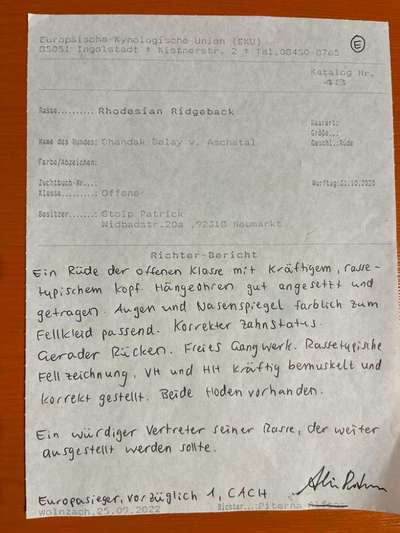 Europäische Kynologische Union (EKU)
85051 Ingolstadt * Nistnerstr. 2 * Tel.08450-8765
E
Katalog Nr.
Rasse.........: Rhodesian Ridgeback
Haarart:
Größe..:
Name des Hundes: Dhandak Delay v. Aschatal
Geschl.:Rüde
Farbe/Abzeichen:
Zuchtbuch-Nr...:
Klasse.........: Offene
Wurftag:01.10.2020
Besitzer.......: Stolp Patrick
Wildbadstr.20a ,92318 Neumarkt
Richter-Bericht
Ein Rüde der offenen Klasse mit kräftigem, rasse-
typischem Kopf. Hängeohren gut angesetzt und
getragen. Augen und Nasenspiegel farblich zum
Fellkleid passend. Korrekter Zahnstatus.
Gerader Rücken. Freies Gangwerk. Rassetypische
Fellzeichnung. VH und HH kräftig bemuskelt und
korrekt gestellt. Beide Hoden vorhanden.
Ein würdiger Vertreter seiner Rasse, der weiter
ausgestellt werden sollte.
Europasieger, vorzüglich 1, CACH
Wolnzach, 25.09.2022 Richter..: Piterna